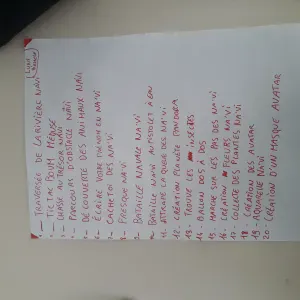 TRAVERSÉE DE LA RIVIÈRE NAVI
TIC TAC BOUM MÉDUSE
CHASSE AU TRÉSOR NAVI
PARCOURS D'OBSTACLE NAVI
DÉCOUVERTE DES ANIMAUX NAVI
6- ÉCRIRE VOTRE PRENOM EN NA'VI
7- CACHE TOI DES NA'VI
8- FRESQUE NA'VI
9- BATAILLE NAVALE NA'VI
10- BATAILLE NAVI AU PISTOLET À EAU
11- ATTRAPE LA QUEUE DES NA'VI
12- CRÉATION PLANÈTE PANDORA
13- TROUVE LES INSECTES
14- BALLON DOS À DOS
15- MARCHE SUR LES PAS DES NA'VI
16- CRÉATION FLEURS NA'VI
17- COLLECTE DES PLANTES NA'VI
18- CRÉATION DES AVATAR
19- AQUARELLE NA'VI
20- CRÉATION D'UN MASQUE AVATAR